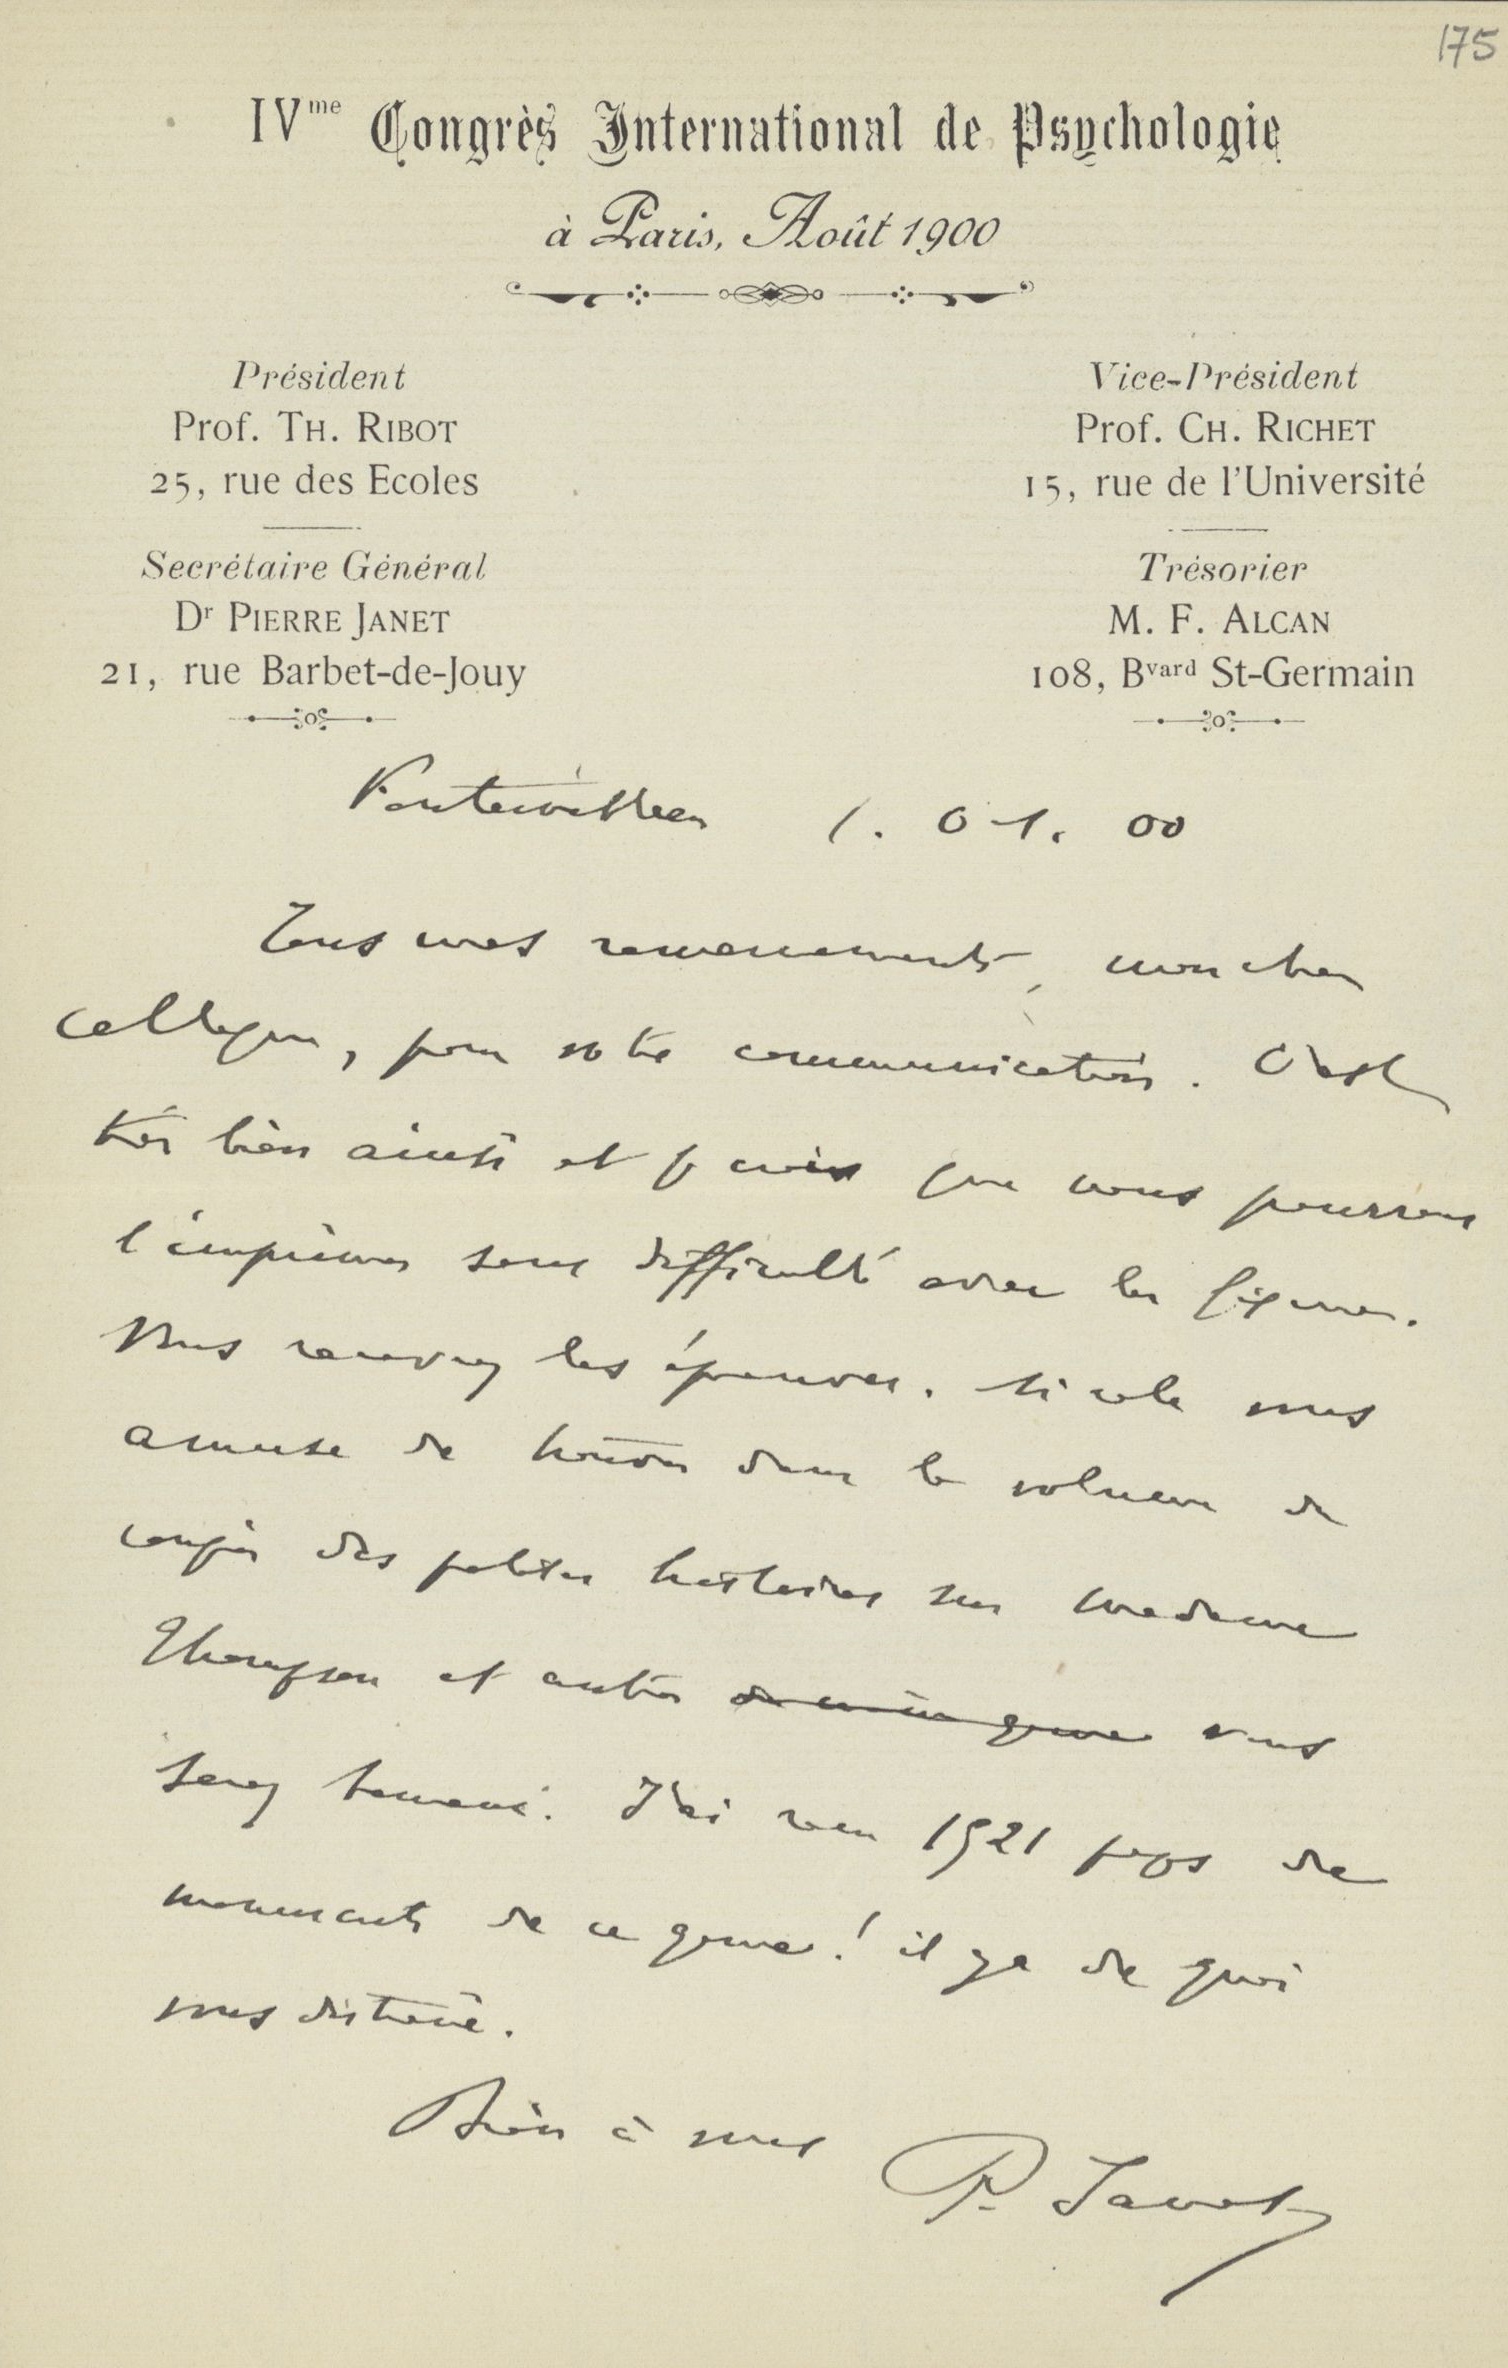 175
IVme Congrès International de Psychologie
à Paris, Août 1900
Président
Prof. TH. RIBOT
25, rue des Ecoles
Secrétaire Général
Dr PIERRE JANET
21, rue Barbet-de-Jouy
Vice-Président
Prof. CH. RICHET
15, rue de l'Université
Trésorier
M. F. ALCAN
108, Bvard St-Germain
Fontainebleau 1. 00
Tous mes remerciements, mon cher
collègue, pour votre communication. C'est
très bien ainsi et je crois que nous pourrons
l'imprimer sans difficulté avec les figures.
Vous recevrez les épreuves. Si cela vous
amuse de trouver dans le volume du
congrès des petites histoires sur madame
Thompson et autres de même genre vous
serez J'ai reçu 1521 pages de
de ce genre! il y a de quoi
vous distraire.
Bien à vous P. Janet